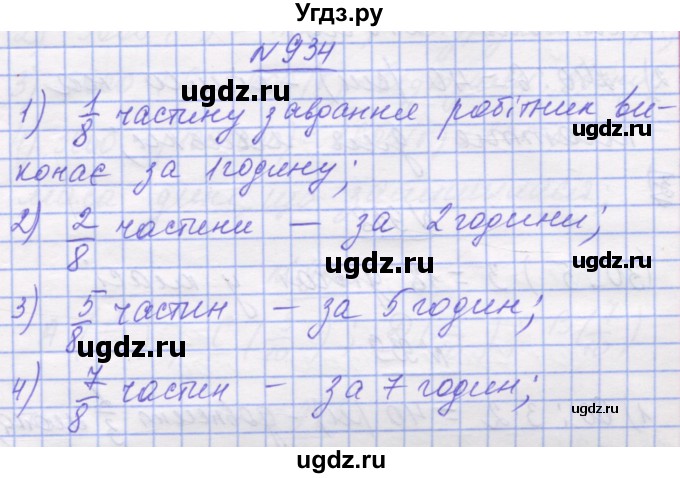 Угдз.ру
N 934
ugdz.ru ugdz.ru
1) 1/8 частину завдання робітник ви-
конає за 1 годину;
ugdz.ru ugdz.ru
2) 2/8 частини — за 2 години;
ugdz.ru
3) 5/8 частин — за 5 годин;
ugdz.ru ugdz.ru
4) 7/8 частин — за 7 годин;
ugdz.ru
ugdz.ru